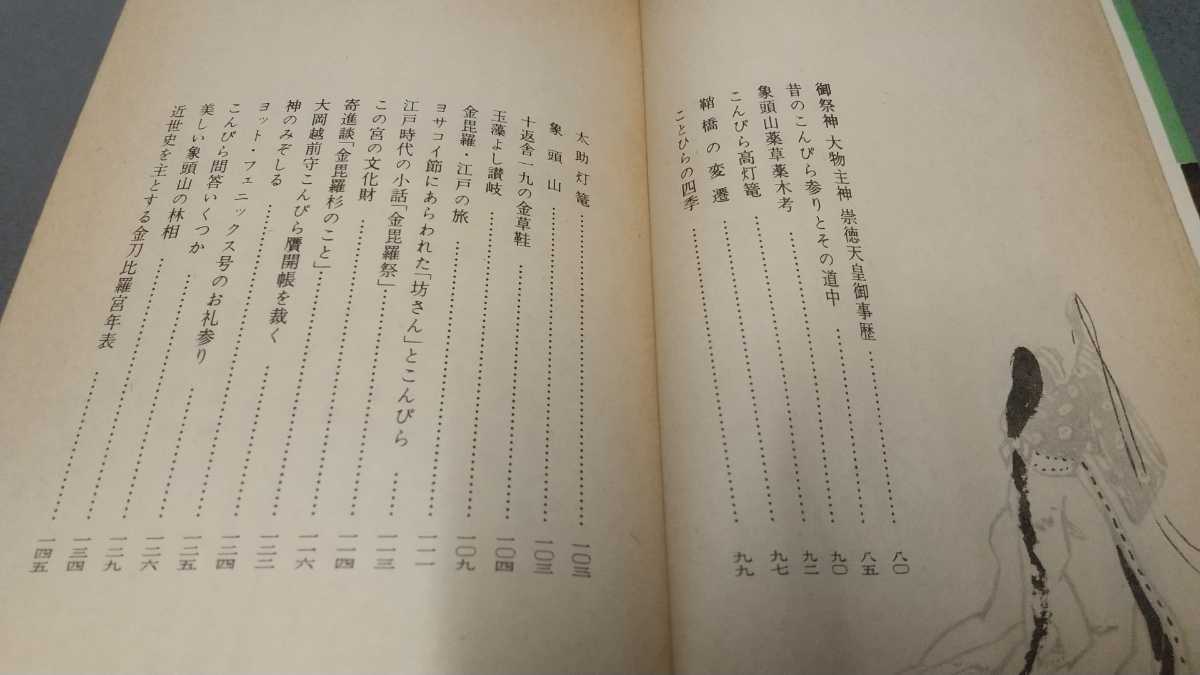 御祭神 大物主神 崇徳天皇御事歴……八〇
昔のこんぴら参りとその道中……八五
象頭山薬草薬木考……九〇
こんぴら高灯篭……九二
鞘橋の変遷……九七
ことひらの四季……九九
太助灯篭……一〇三
象頭山……一〇三
十返舎一九の金草鞋……一〇四
玉藻よし讃岐……一〇九
金毘羅・江戸の旅……一一一
ヨサコイ節にあらわれた「坊さん」とこんぴら……一一三
江戸時代の小話「金毘羅祭」……一一四
この宮の文化財……一一六
寄進談「金毘羅杉のこと」……一二二
大岡越前守こんぴら贋開帳を裁く……一二四
神のみぞしる……一二五
ヨット・フェニックス号のお礼参り……一二六
こんぴら問答いくつか……一二九
美しい象頭山の林相……一三四
近世史を主とする金刀比羅宮年表……一四五